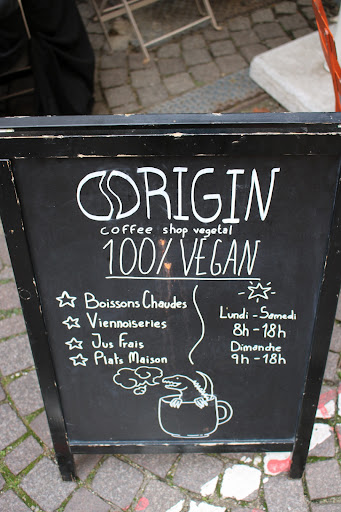 ORIGIN
coffee shop vegetal
100% VEGAN
Boissons Chaudes
Viennoiseries
Jus Frais
Plats Maison
Lundi - Samedi
8h - 18h
Dimanche
9h - 18h